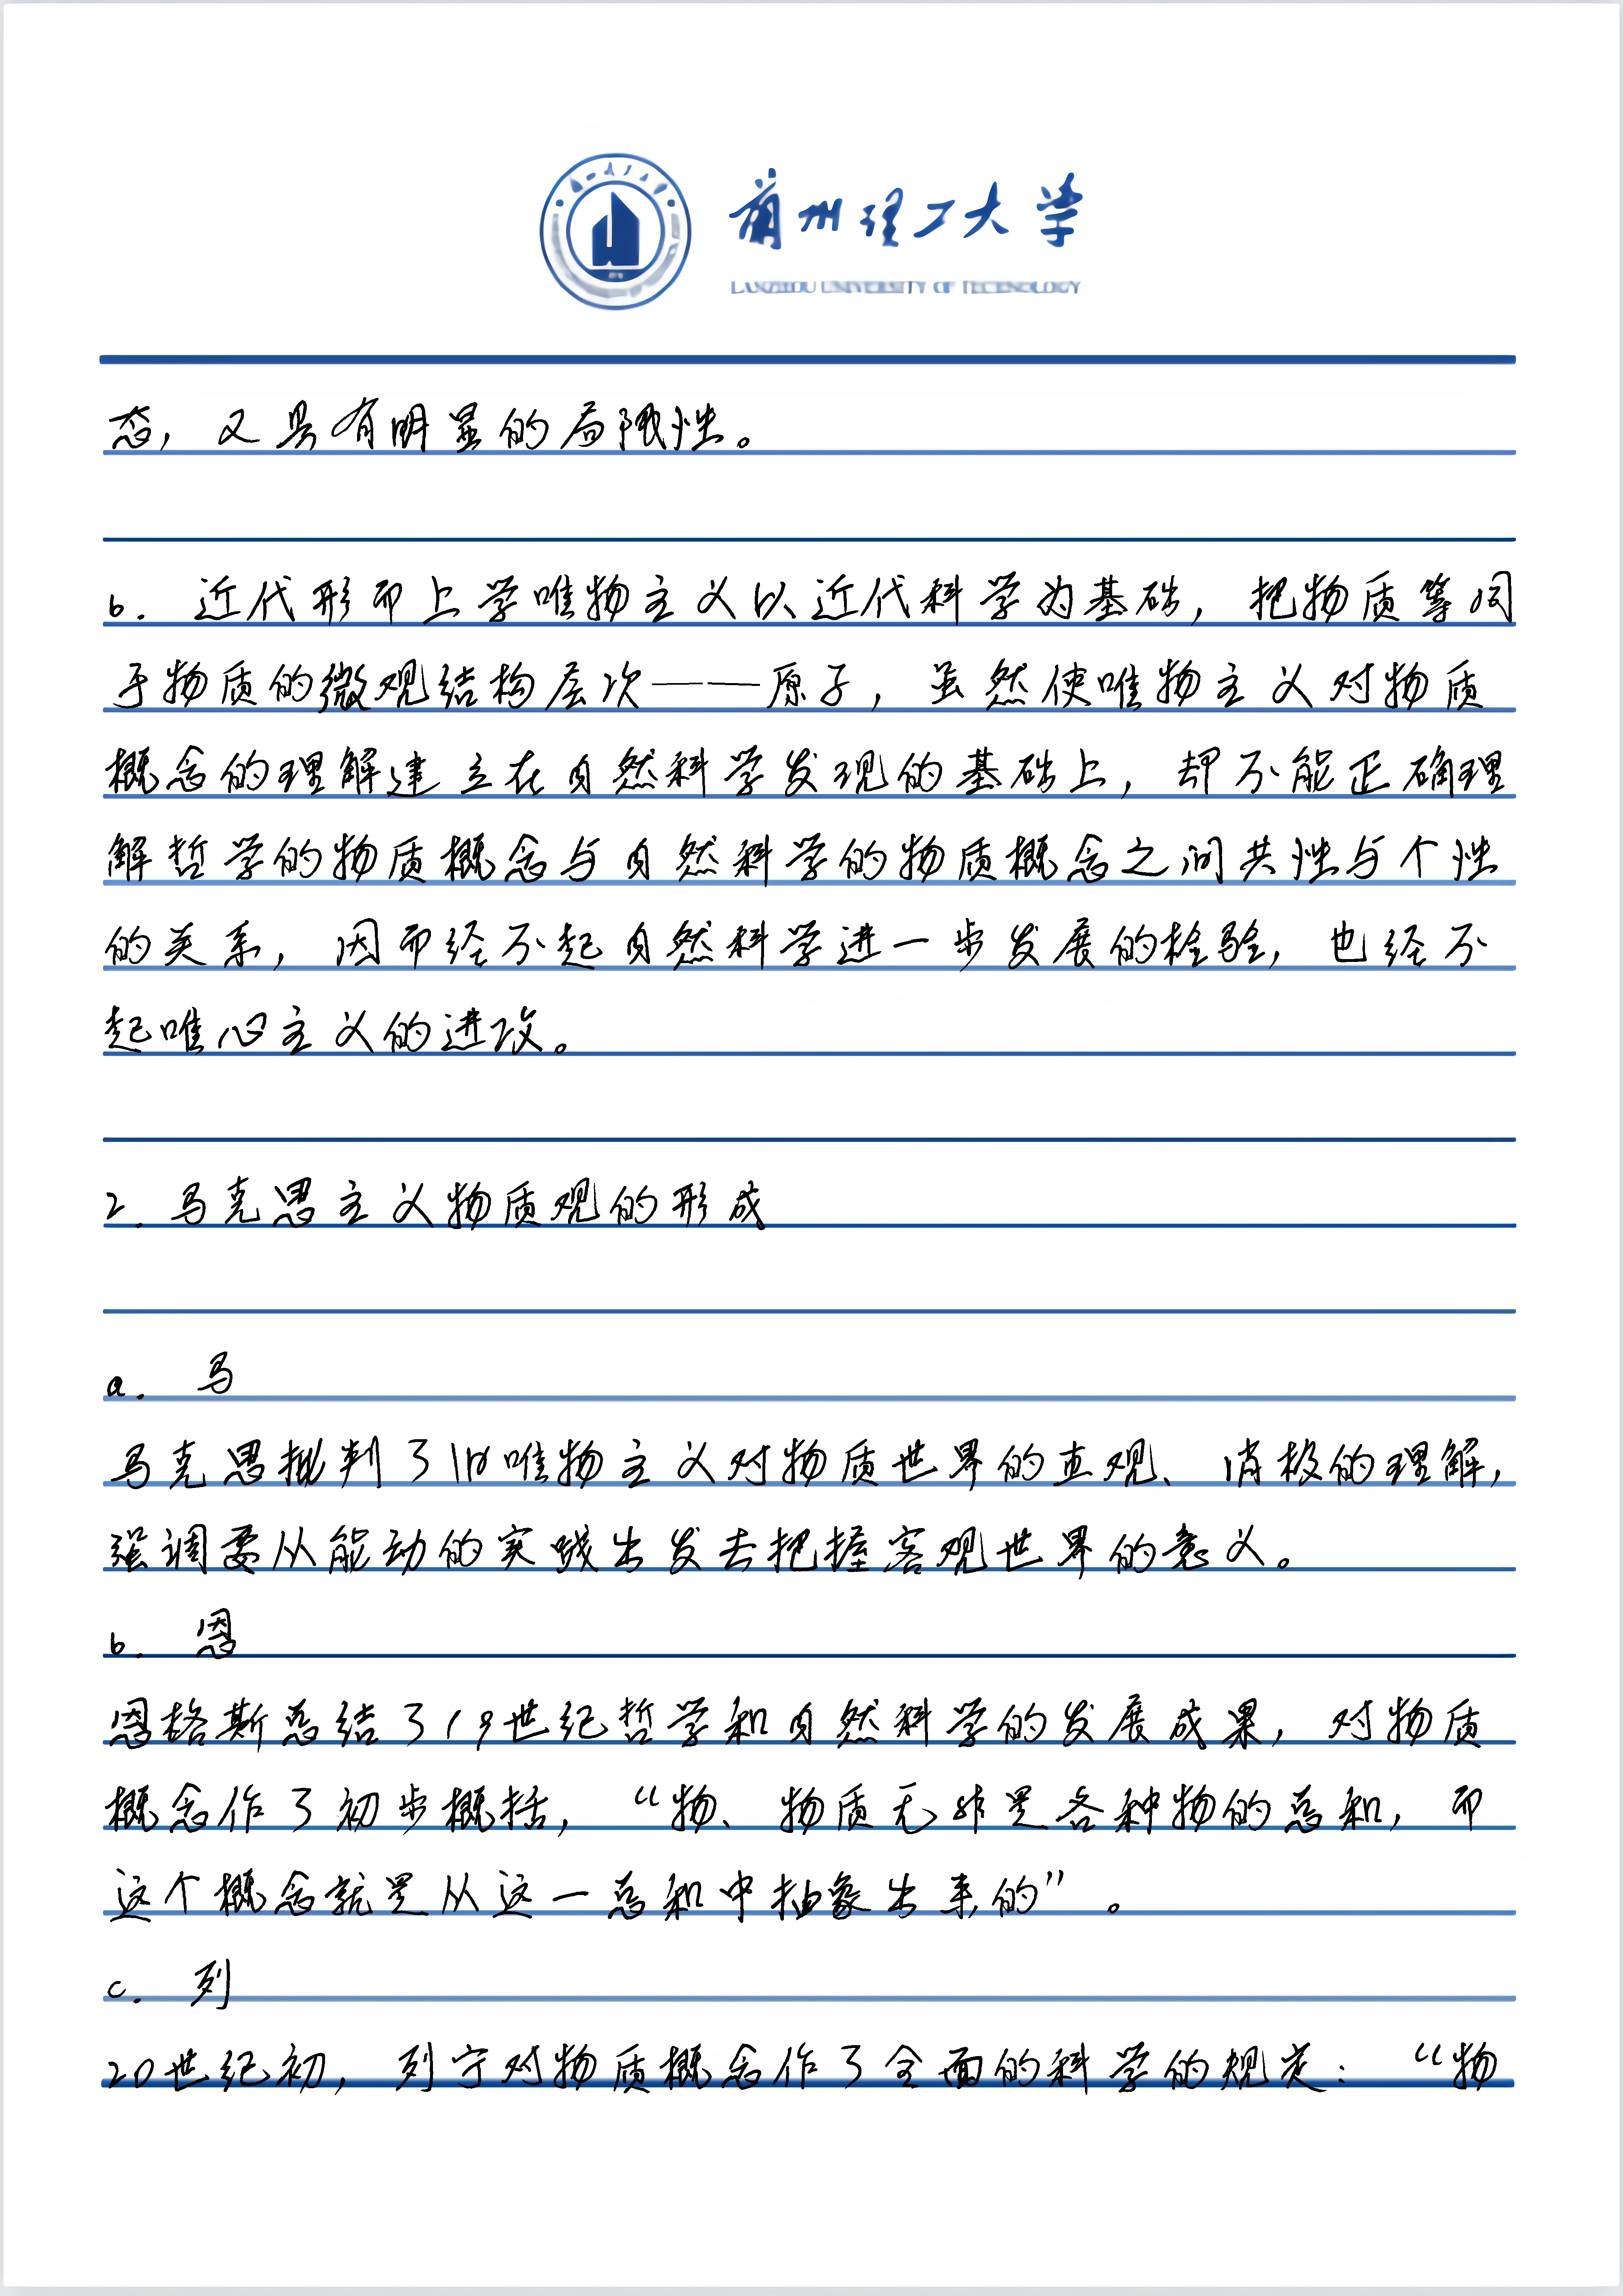 兰州理工大学
LANZHOU UNIVERSITY OF TECHNOLOGY
态，又具有明显的局限性。
b. 近代形而上学唯物主义以近代科学为基础，把物质等同
于物质的微观结构层次——原子，虽然使唯物主义对物质
概念的理解建立在自然科学发现的基础上，却不能正确理
解哲学的物质概念与自然科学的物质概念之间共性与个性
的关系，因而经不起自然科学进一步发展的检验，也经不
起唯心主义的进攻。
2. 马克思主义物质观的形成
a. 马
马克思批判了旧唯物主义对物质世界的直观、消极的理解，
强调要从能动的实践出发去把握客观世界的意义。
b. 恩
恩格斯总结了19世纪哲学和自然科学的发展成果，对物质
概念作了初步概括，“物、物质无非是各种物的总和，而
这个概念就是从这一总和中抽象出来的”。
c. 列
20世纪初，列宁对物质概念作了全面的科学的规定：“物